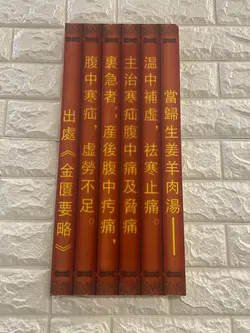 當歸生姜羊肉湯——
溫中補虛，祛寒止痛。
主治寒疝腹中痛及脅痛
裏急者，產後腹中㽲痛，
腹中寒疝，虛勞不足。
出處《金匱要略》